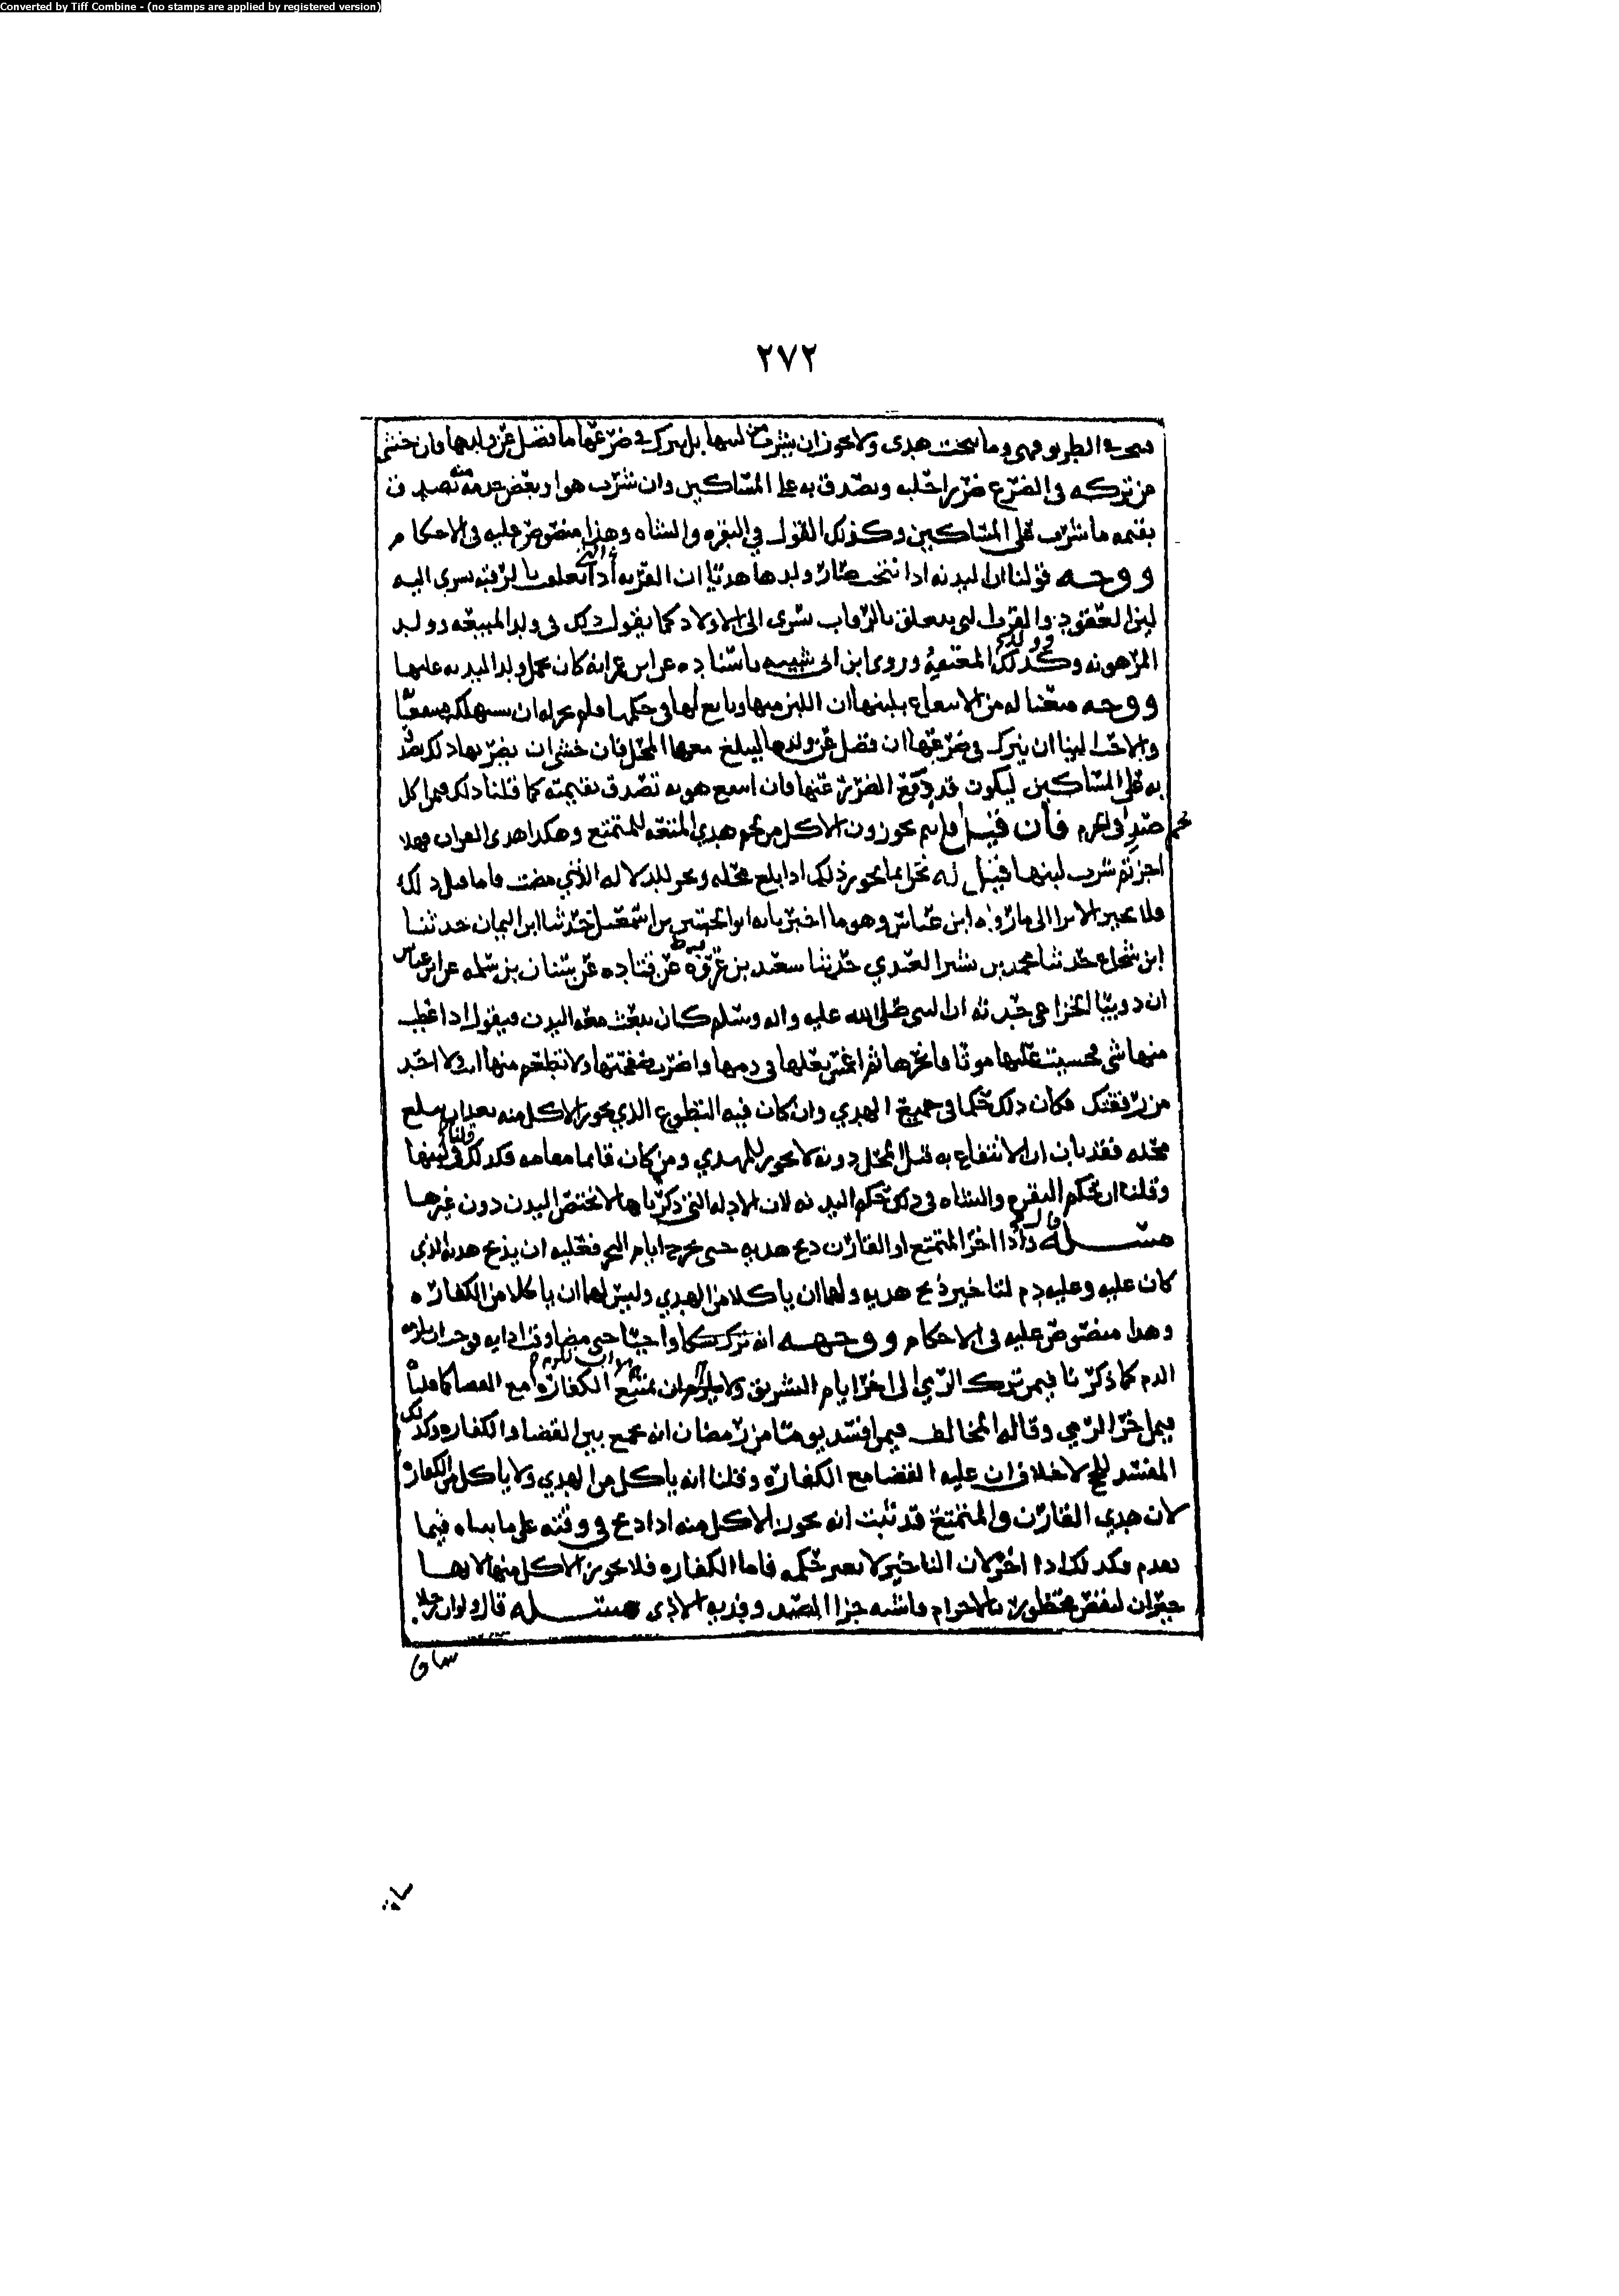 Converted by Tiff Combine - (no stamps are applied by registered version)
٢٧٢
في الطريق فهي وما نتجت هدى ولا يجوز ان يشرب من لبنها بل يترك في ضرعها ما فضل عن ولدها فان خشي
من تركه في الضرع ضررا حلبه وتصدق به على المساكين وان شرب هو او بعض خدمه منه تصدق
بقيمة ما شرب على المساكين وكذلك القول في البقرة والشاه وهذا منصوص عليه في الاحكام
ووجه قولنا ان البدنه اذا نتجت صار ولدها هديا ان القربه اذا تعلقت بالرقبه يسري اليه
العقود والقرب التي تتعلق بالرقاب تسري الى الاولاد كما يقول ذلك في ولد المبيعه وولد
المرهونه وكذلك ولد المعتقه وروى ابن ابي شيبه باسناده عن ابن عمر انه كان يحمل ولد البدنه عليها
ووجه منعنا له من الانتفاع بلبنها ان اللبن منها وتابع لها في حكمها فلم يجز له ان يستهلكه
ان يترك في ضرعها ان فضل عن ولدها ليبلغ معها المحل فان خشي ان يضر بها ذلك تصدق
به على المساكين ليكون قد دفع الضرر عنها فان انتفع هو به تصدق بقيمته كما قلنا ذلك فيمن اكل
لحم صيد في الحرم فان قيل فانتم تجوزون الاكل من لحم هدي المتعه للمتمتع وهكذا هدي القران فهلا
اجزتم شرب لبنها قيل له نحن انما نجوز ذلك اذا بلغ محله ونحر للدلاله التي مضت فاما قبل ذلك
فلا نجيز الا ترا الى ما رواه ابن عباس وهو ما اخبرنا به ابو الحسين بن اسمعيل حدثنا ابن اليمان حدثنا
ابن شجاع حدثنا محمد بن بشر العبدي حدثنا سعيد بن عن قتاده عن سنان بن سلمه عن ابن عباس
ان ذويبا الخزاعي حدثه ان النبي صلى الله عليه واله وسلم كان يبعث معه البدن فيقول اذا عطب
منها شي فخشيت عليها موتا فانحرها ثم اغمس نعلها في دمها واضرب صفحتها ولا تطعم منها انت ولا احد
من رفقتك فكان ذلك حكما في جميع الهدي وان كان فيه التطوع الذي يجوز الاكل منه بعد ان يبلغ
محله فقد بان ان الانتفاع به قبل المحل دونه لا يجوز للمهدي ومن كان قايما مقامه فكذلك قلنا في لبنها
وقلنا ان حكم البقره والشاه في ذلك حكم البدنه لان الادله التي ذكرناها لا تختص البدن دون غيرها
مسله قال واذا اخر المتمتع او القارن ذبح هديه حتى يخرج ايام النحر فعليه ان يذبح هديه الذي
كان عليه وعليه دم لتاخير ذبح هديه ولهما ان ياكلا من الهدي وليس لهما ان ياكلا من الكفاره
وهذا منصوص عليه في الاحكام ووجهه انه ترك نسكا واجبا حتى مضا وقت ادايه فوجب ان يلزمه
الدم كما ذكرنا فيمن ترك الرمي الى اخر ايام التشريق ولا يلزم ان يمتنع الكفاره مع القضا كما قلنا
فيمن اخر الرمي وقاله المخالف فيمن افسد يوما من رمضان انه يجمع بين القضا والكفاره وكذلك
المفسد للحج لا خلاف ان عليه القضا مع الكفاره وقلنا انه ياكل من الهدي ولا ياكل من الكفاره
لان هدي القارن والمتمتع قد ثبت انه يجوز الاكل منه اذا ذبح في وقته على ما بيناه فيما
تقدم فكذلك اذا اخر لان التاخير لا يغير حكمه فاما الكفاره فلا يجوز الاكل منها لانها
جبران لنقص محظورات الاحرام فاشبه جزا الصيد وفديه الاذى مسله قال ولو ان رجلا
ساق